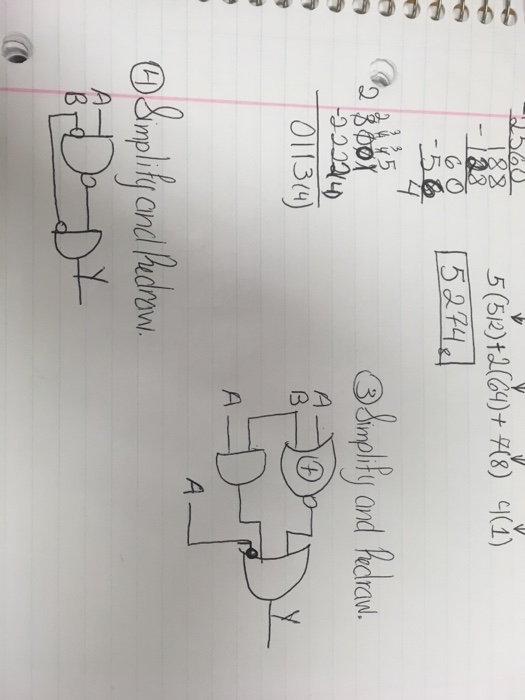 -2560
188
-128
60
-56
4
5(512)+2(64)+7(8) 4(1)
5274₈
2
-2222(4)
0113(4)
③ Simplify and Redraw.
A
B
A
A
Y
④ Simplify and Redraw.
A
B
Y